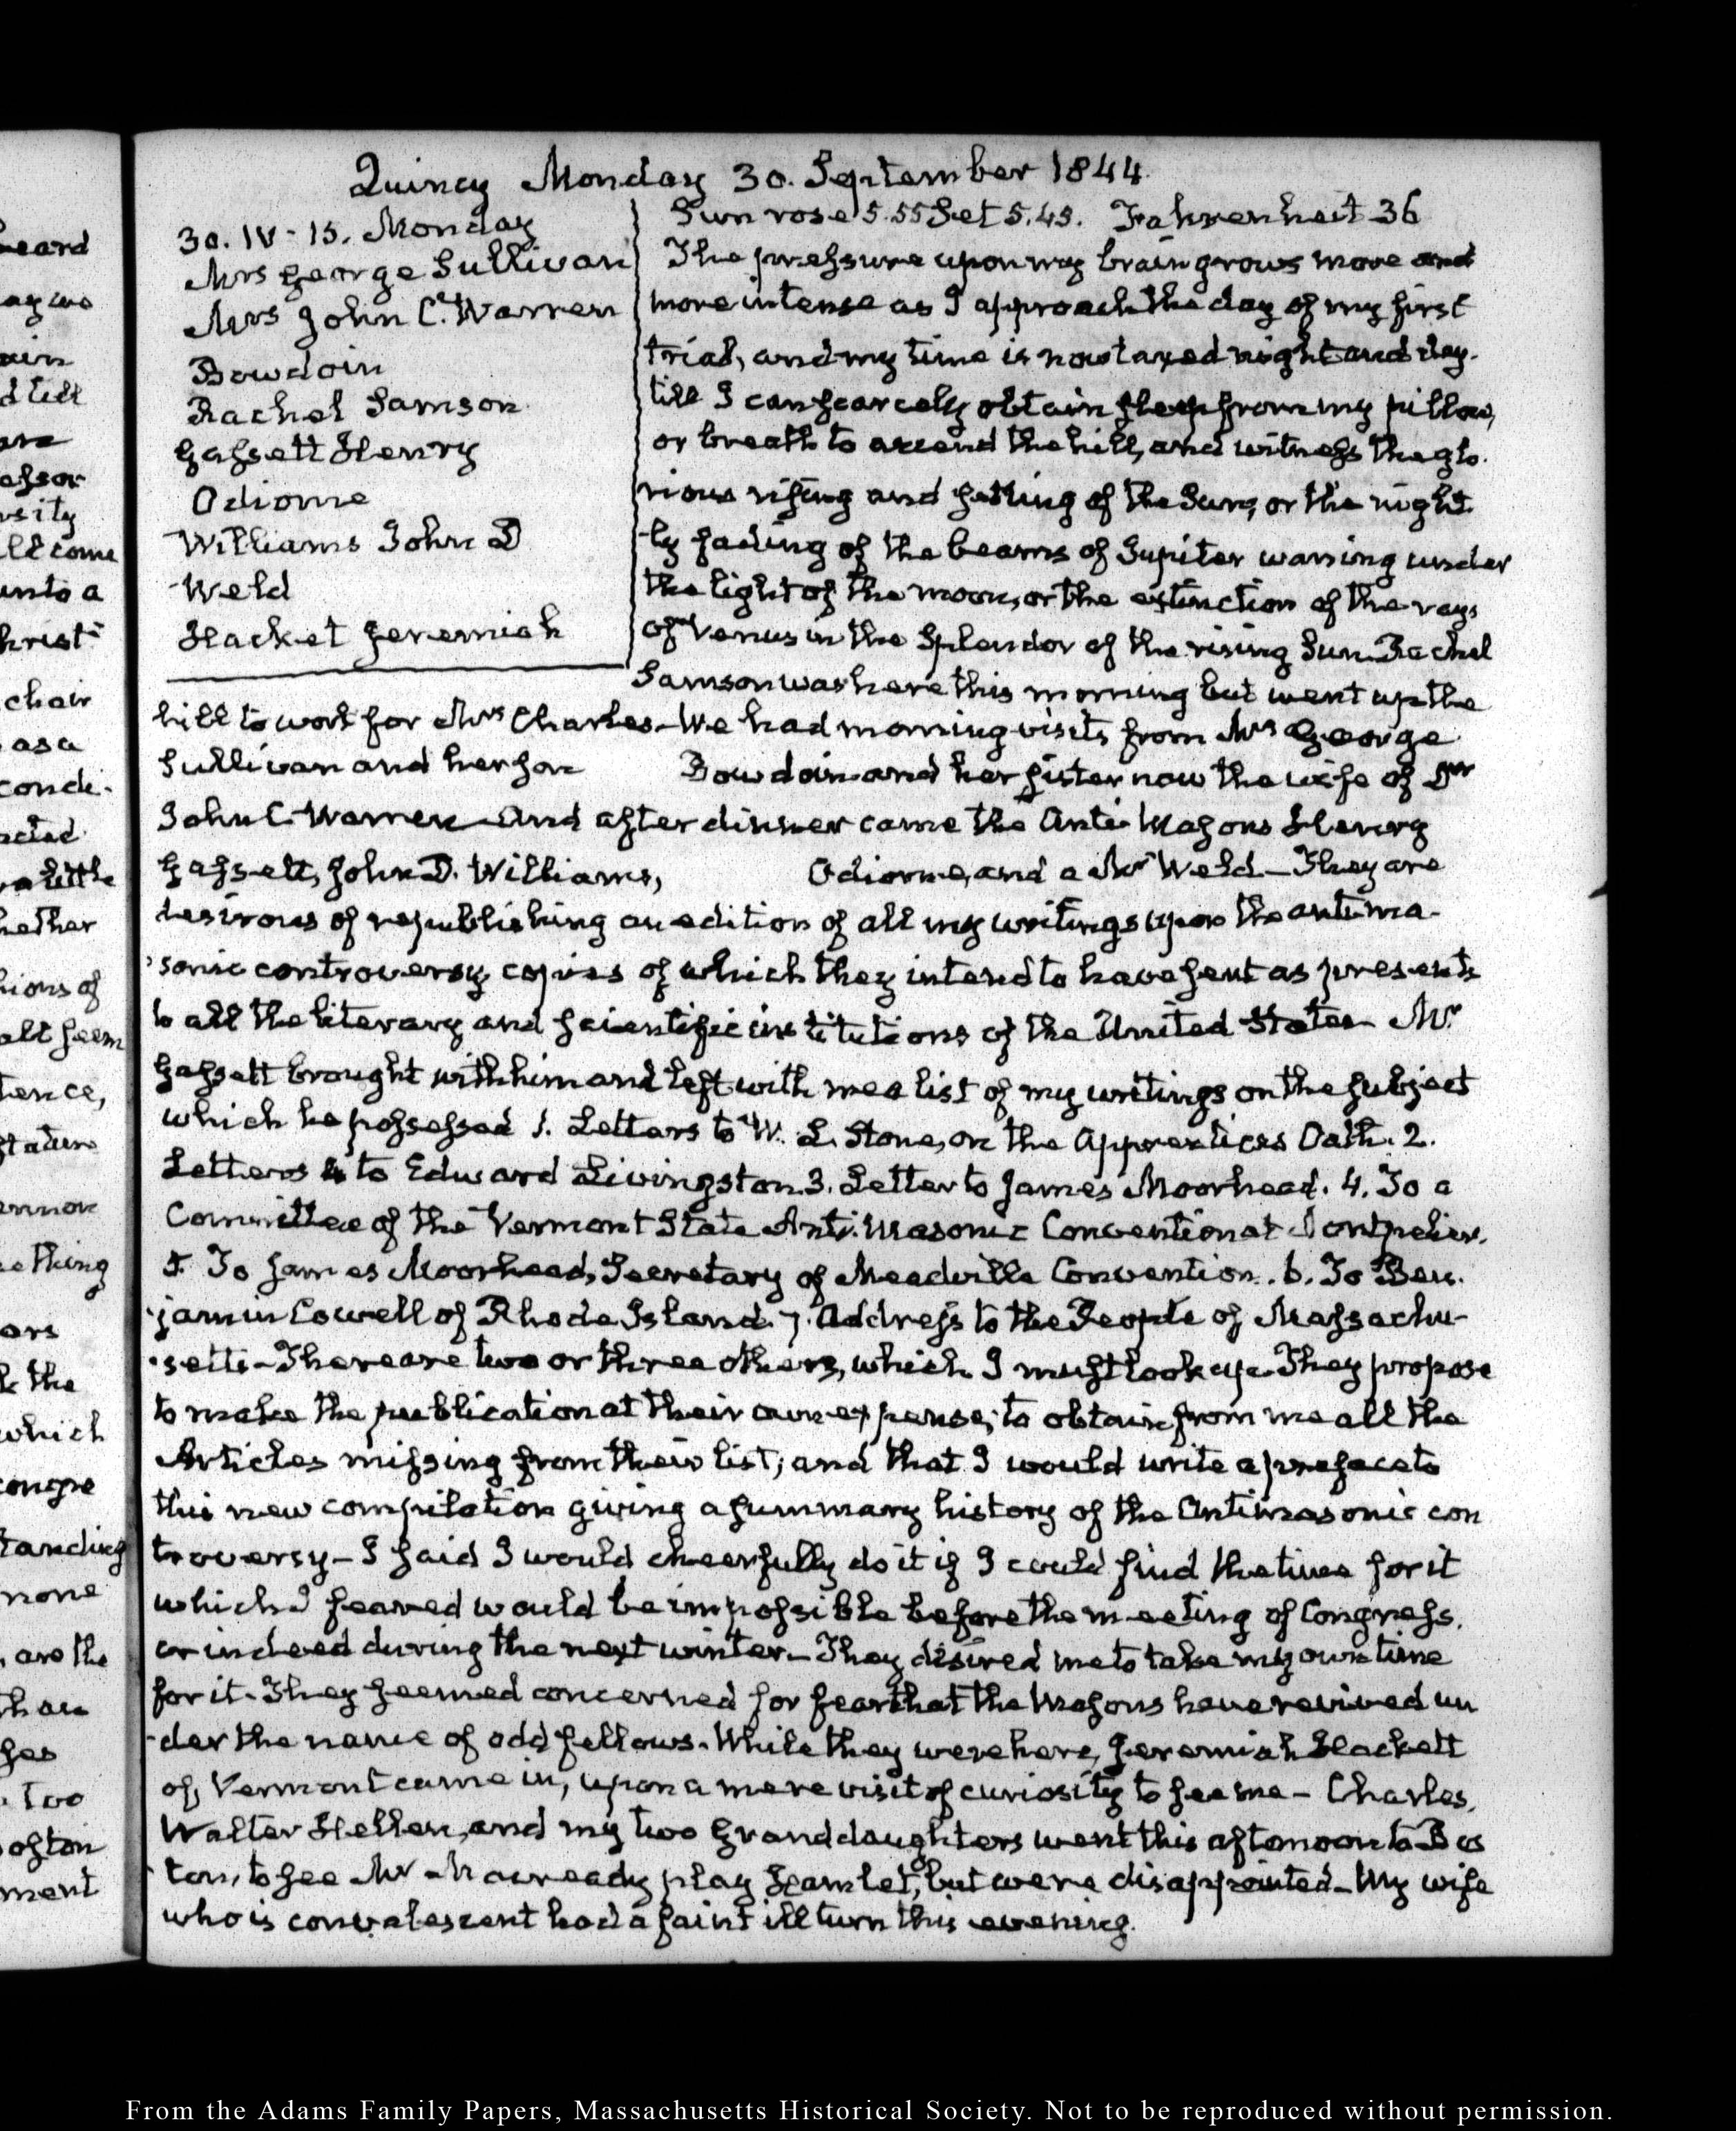 Quincy Monday 30. September 1844.
30. IV-15. Monday
Mrs George Sullivan
Mrs John C. Warren
Bowdoin
Rachel Samson
Gassett Henry
Odiorne
Williams John D
Weld
Hacket Jeremiah
Sun rose 5.55 Set 5.45. Fahrenheit 36
The pressure upon my brain grows more and
more intense as I approach the day of my first
trial, and my time is now taxed night and day
till I can scarcely obtain sleep from my pillow,
or breath to ascend the hill, and witness the glo-
rious rising and setting of the Sun, or the night-
-ly fading of the beams of Jupiter waning under
the light of the moon, or the extinction of the rays
of Venus in the Splendor of the rising Sun. Rachel
Samson was here this morning but went up the
hill to work for Mrs Charles - We had morning visits from Mrs George
Sullivan and her son Bowdoin and her sister now the wife of Dr
John C. Warren - And after dinner came the Anti-Masons Henry
Gassett, John D. Williams, Odiorne, and a Mr Weld - They are
desirous of republishing an edition of all my writings upon the antima-
-sonic controversy copies of which they intend to have sent as presents
to all the literary and scientific institutions of the United States - Mr
Gassett brought with him and left with me a list of my writings on the subject
which he possessed 1. Letters to W. L. Stone, on the Apprentices Oath. 2.
Letters 4 to Edward Livingston. 3. Letter to James Moorhead. 4. To a
Committee of the Vermont State Anti-Masonic Convention at Montpelier.
5. To James Moorhead, Secretary of Meadville Convention. 6. To Ben-
-jamin Cowell of Rhode Island. 7. Address to the People of Massachu-
-setts - There are two or three others, which I must look up - They propose
to make the publication at their own expense; to obtain from me all the
Articles missing from their list; and that I would write a preface to
this new compilation giving a summary history of the Antimasonic con
troversy - I said I would cheerfully do it if I could find the time for it
which I feared would be impossible before the meeting of Congress,
or indeed during the next winter - They desired me to take my own time
for it - They seemed concerned for fear that the Masons have revived un
-der the name of odd fellows - While they were here, Jeremiah Hackett
of Vermont came in, upon a mere visit of curiosity to see me - Charles,
Walter Hellen, and my two Granddaughters went this afternoon to Bos
ton, to see Mr Macready play Hamlet, but were disappointed - My wife
who is convalescent had a faint ill turn this evening.
From the Adams Family Papers, Massachusetts Historical Society. Not to be reproduced without permission.